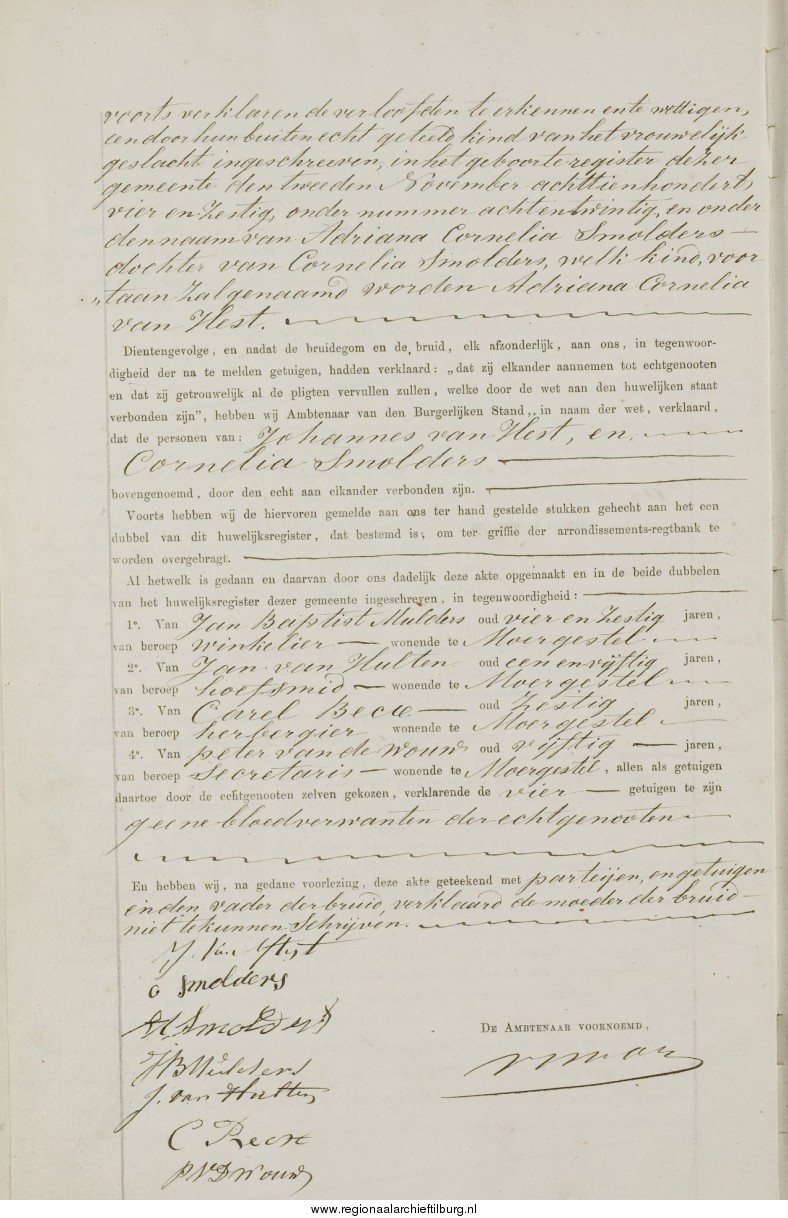 voorts verklaren de verloofden te erkennen en te wettigen,
een door hun buiten echt geteeld kind van het vrouwelijk
geslacht ingeschreeven, in het geboorte register dezer
gemeente den tweeden November achttienhondert,
vier en zestig, onder nummer achtentwintig, en onder
den naam van Adriana Cornelia Smolders —
dochter van Cornelia Smolders, welk kind, voor
„taan zal genaamd worden Adriana Cornelia
van Hest.
Dientengevolge, en nadat de bruidegom en de bruid, elk afzonderlijk, aan ons, in tegenwoor-
digheid der na te melden getuigen, hadden verklaard: „dat zij elkander aannemen tot echtgenooten
en dat zij getrouwelijk al de pligten vervullen zullen, welke door de wet aan den huwelijken staat
verbonden zijn”, hebben wij Ambtenaar van den Burgerlijken Stand, in naam der wet, verklaard,
dat de personen van: Johannes van Hest, en
Cornelia Smolders —
bovengenoemd, door den echt aan elkander verbonden zijn.
Voorts hebben wij de hiervoren gemelde aan ons ter hand gestelde stukken gehecht aan het een
dubbel van dit huwelijksregister, dat bestemd is, om ter griffie der arrondissements-regtbank te
worden overgebragt.
Al hetwelk is gedaan en daarvan door ons dadelijk deze akte opgemaakt en in de beide dubbelen
van het huwelijksregister dezer gemeente ingeschreven, in tegenwoordigheid:
1º. Van Jan Baptist Mulders oud vier en zestig jaren,
van beroep winkelier — wonende te Moergestel
2º. Van Jan van Hulten oud een en vijftig jaren,
van beroep hoefsmid — wonende te Moergestel
3º. Van Carel Becx — oud zestig jaren,
van beroep herbergier wonende te Moergestel
4º. Van peter van de wouw oud vijftig — jaren,
van beroep Secretaris — wonende te Moergestel, allen als getuigen
daartoe door de echtgenooten zelven gekozen, verklarende de vier — getuigen te zijn
geene bloedverwanten der echtgenooten
En hebben wij, na gedane voorlezing, deze akte geteekend met parteijen, en getuigen
en den vader der bruid, verklaard de moeder der bruid
niet te kunnen Schrijven.
J. van Hest
C Smolders
Smolders
De Ambtenaar voornoemd,
JB Mulders
J. van Hulten
C Becx
P V D Wouw
www.regionaalarchieftilburg.nl